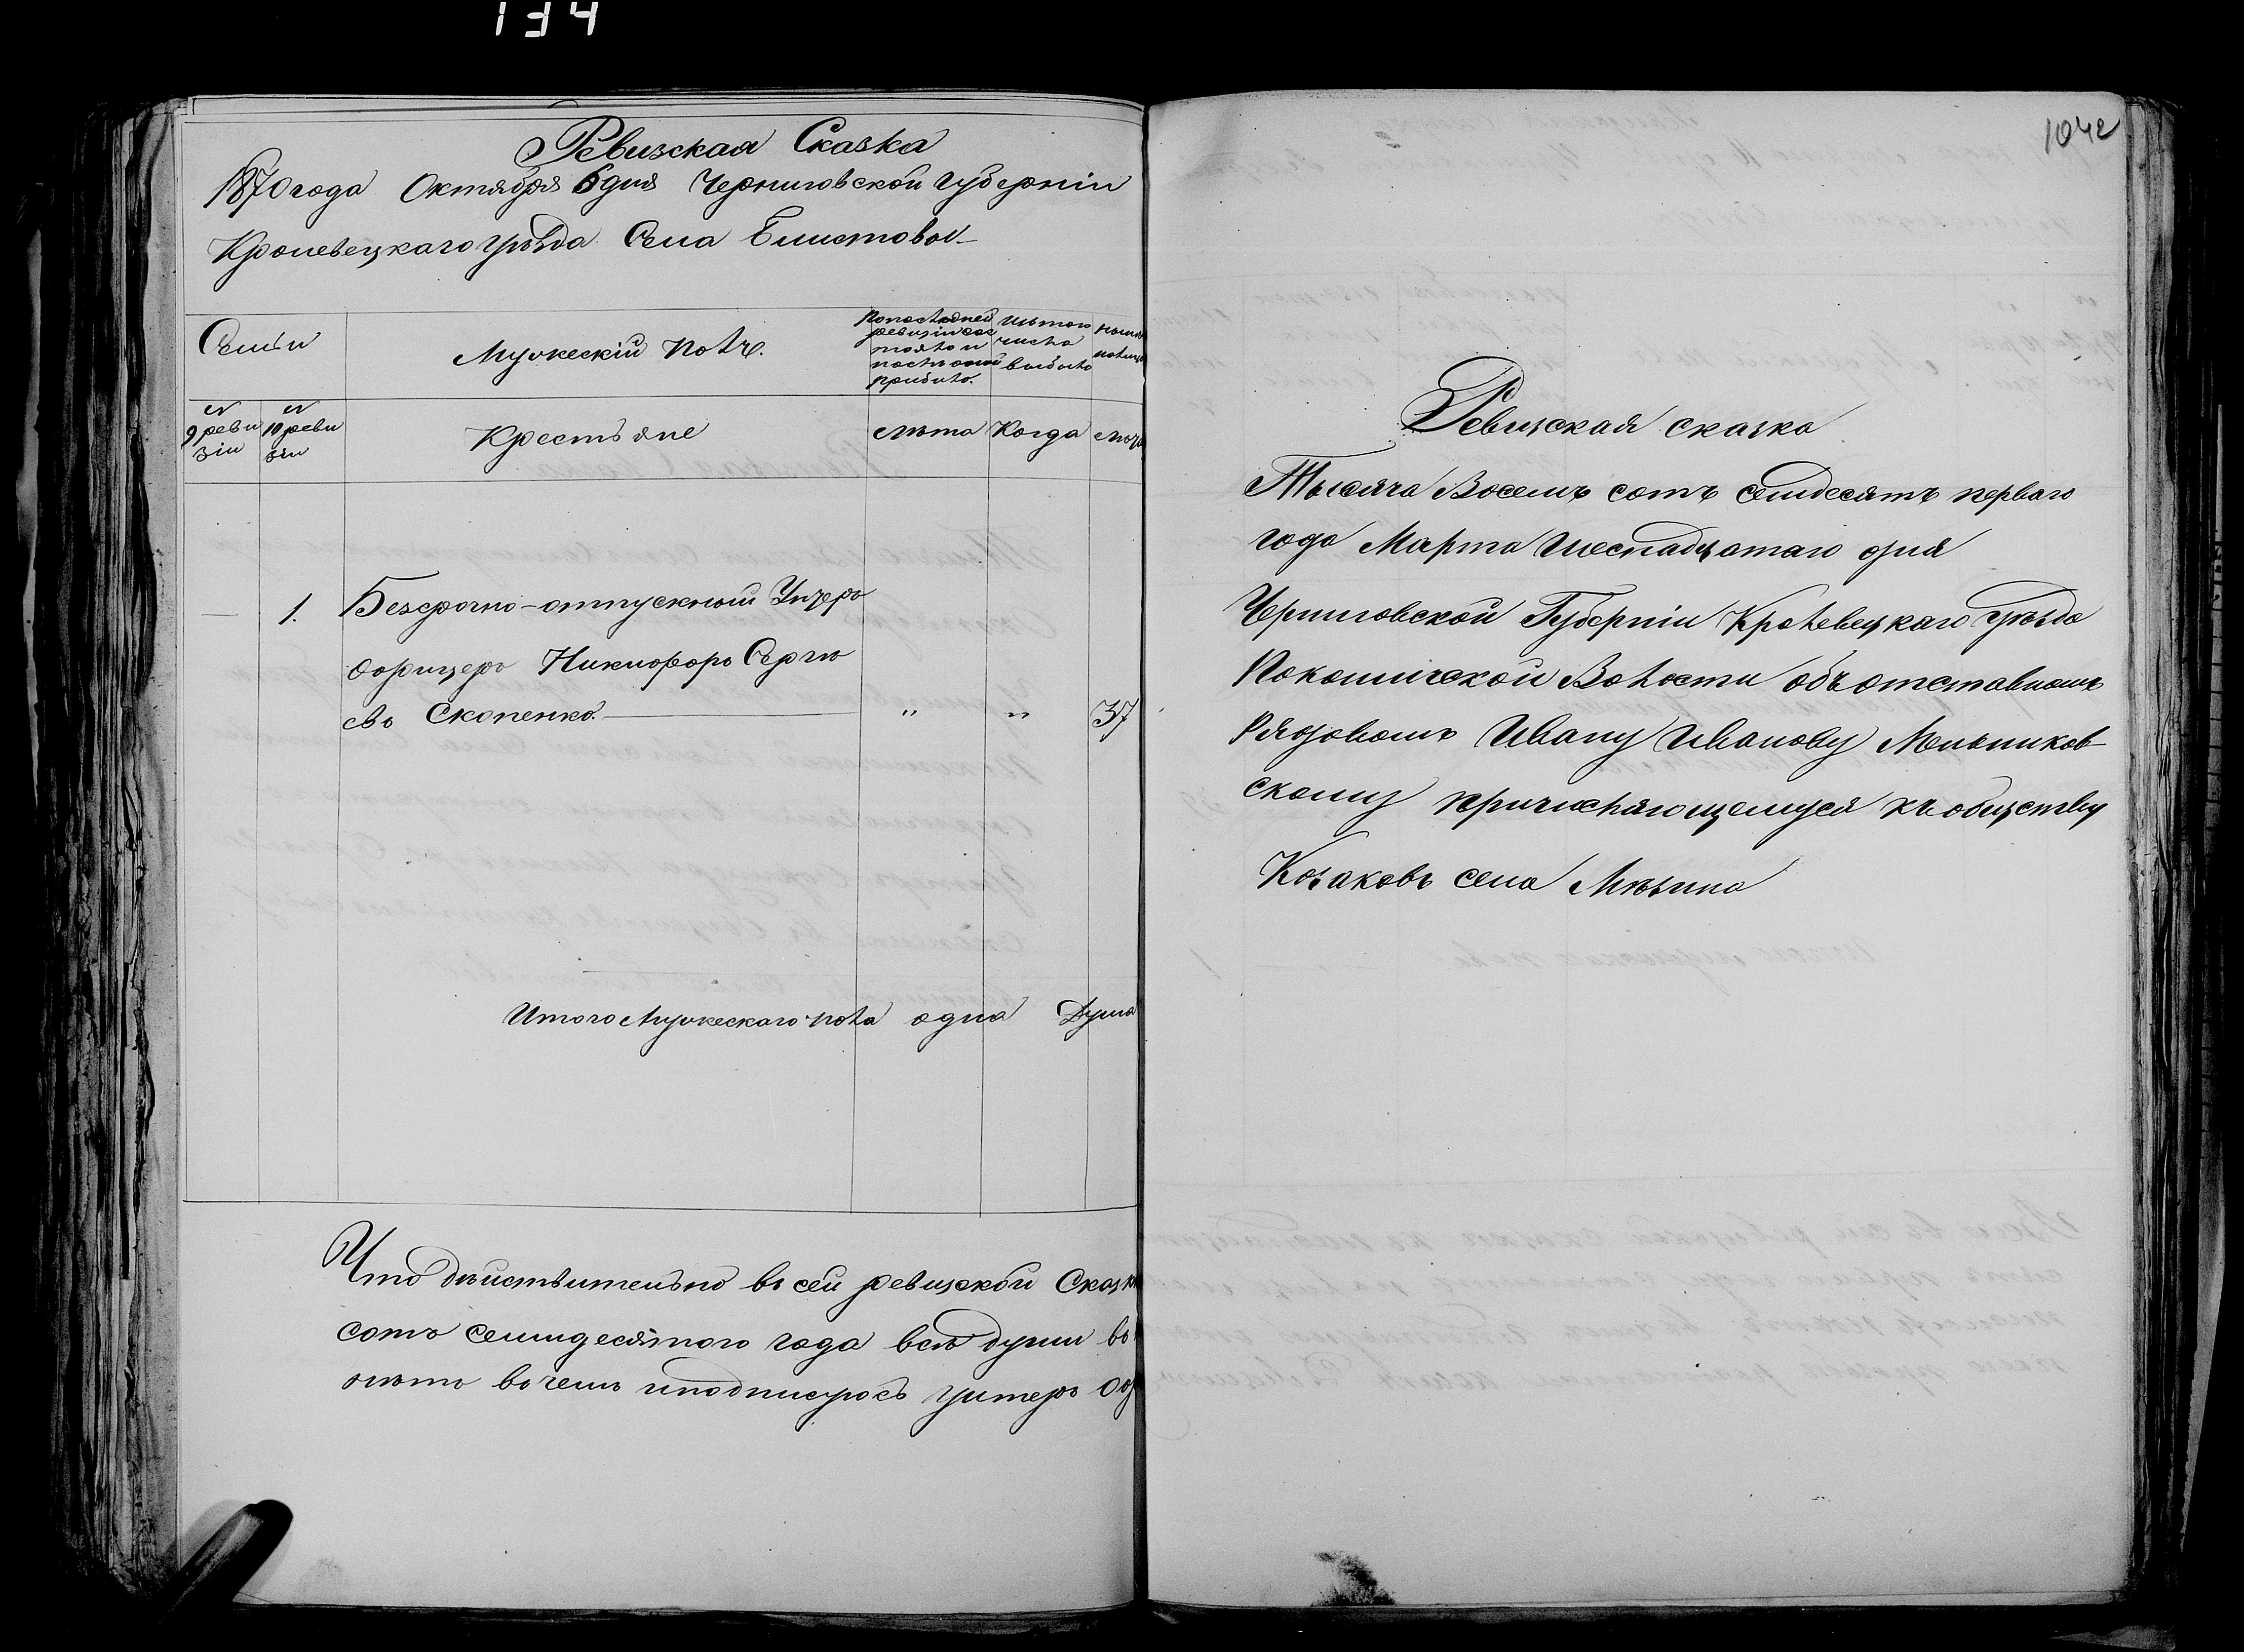 134
Ревизская Сказка
1870 года Октября 6 дня Черниговской губерніи
Кролевецкаго уѣзда Села
Семьи
Мужескій полъ.
По последней ревизіи состояло и послѣ оной прибыло.
Изъ того числа выбыло
9 ревизіи
10 ревизіи
Крестьяне
лѣта
Когда
лѣта
— 1. Безсрочно-отпускный Унтеръ
Офицеръ Никифоръ Сергѣ
евъ Скопенко. — " " 37
Итого Мужескаго пола одна Душа
Что дѣйствительно въ сей ревизской
сотъ семидесятого года всѣ души
въ чемъ и подписуюсь унтеръ
1042
Ревизская сказка
Тысяча Восемъ сотъ семдесятъ перваго
года Марта шеснадцатаго дня
Черниговской Губерніи Кролевецкаго Уѣзда
Покошичской Волости объ отставномъ
Рядовомъ Ивану Иванову Мельников-
скому причисляющемуся къ обществу
Козаковъ села Мѣзина